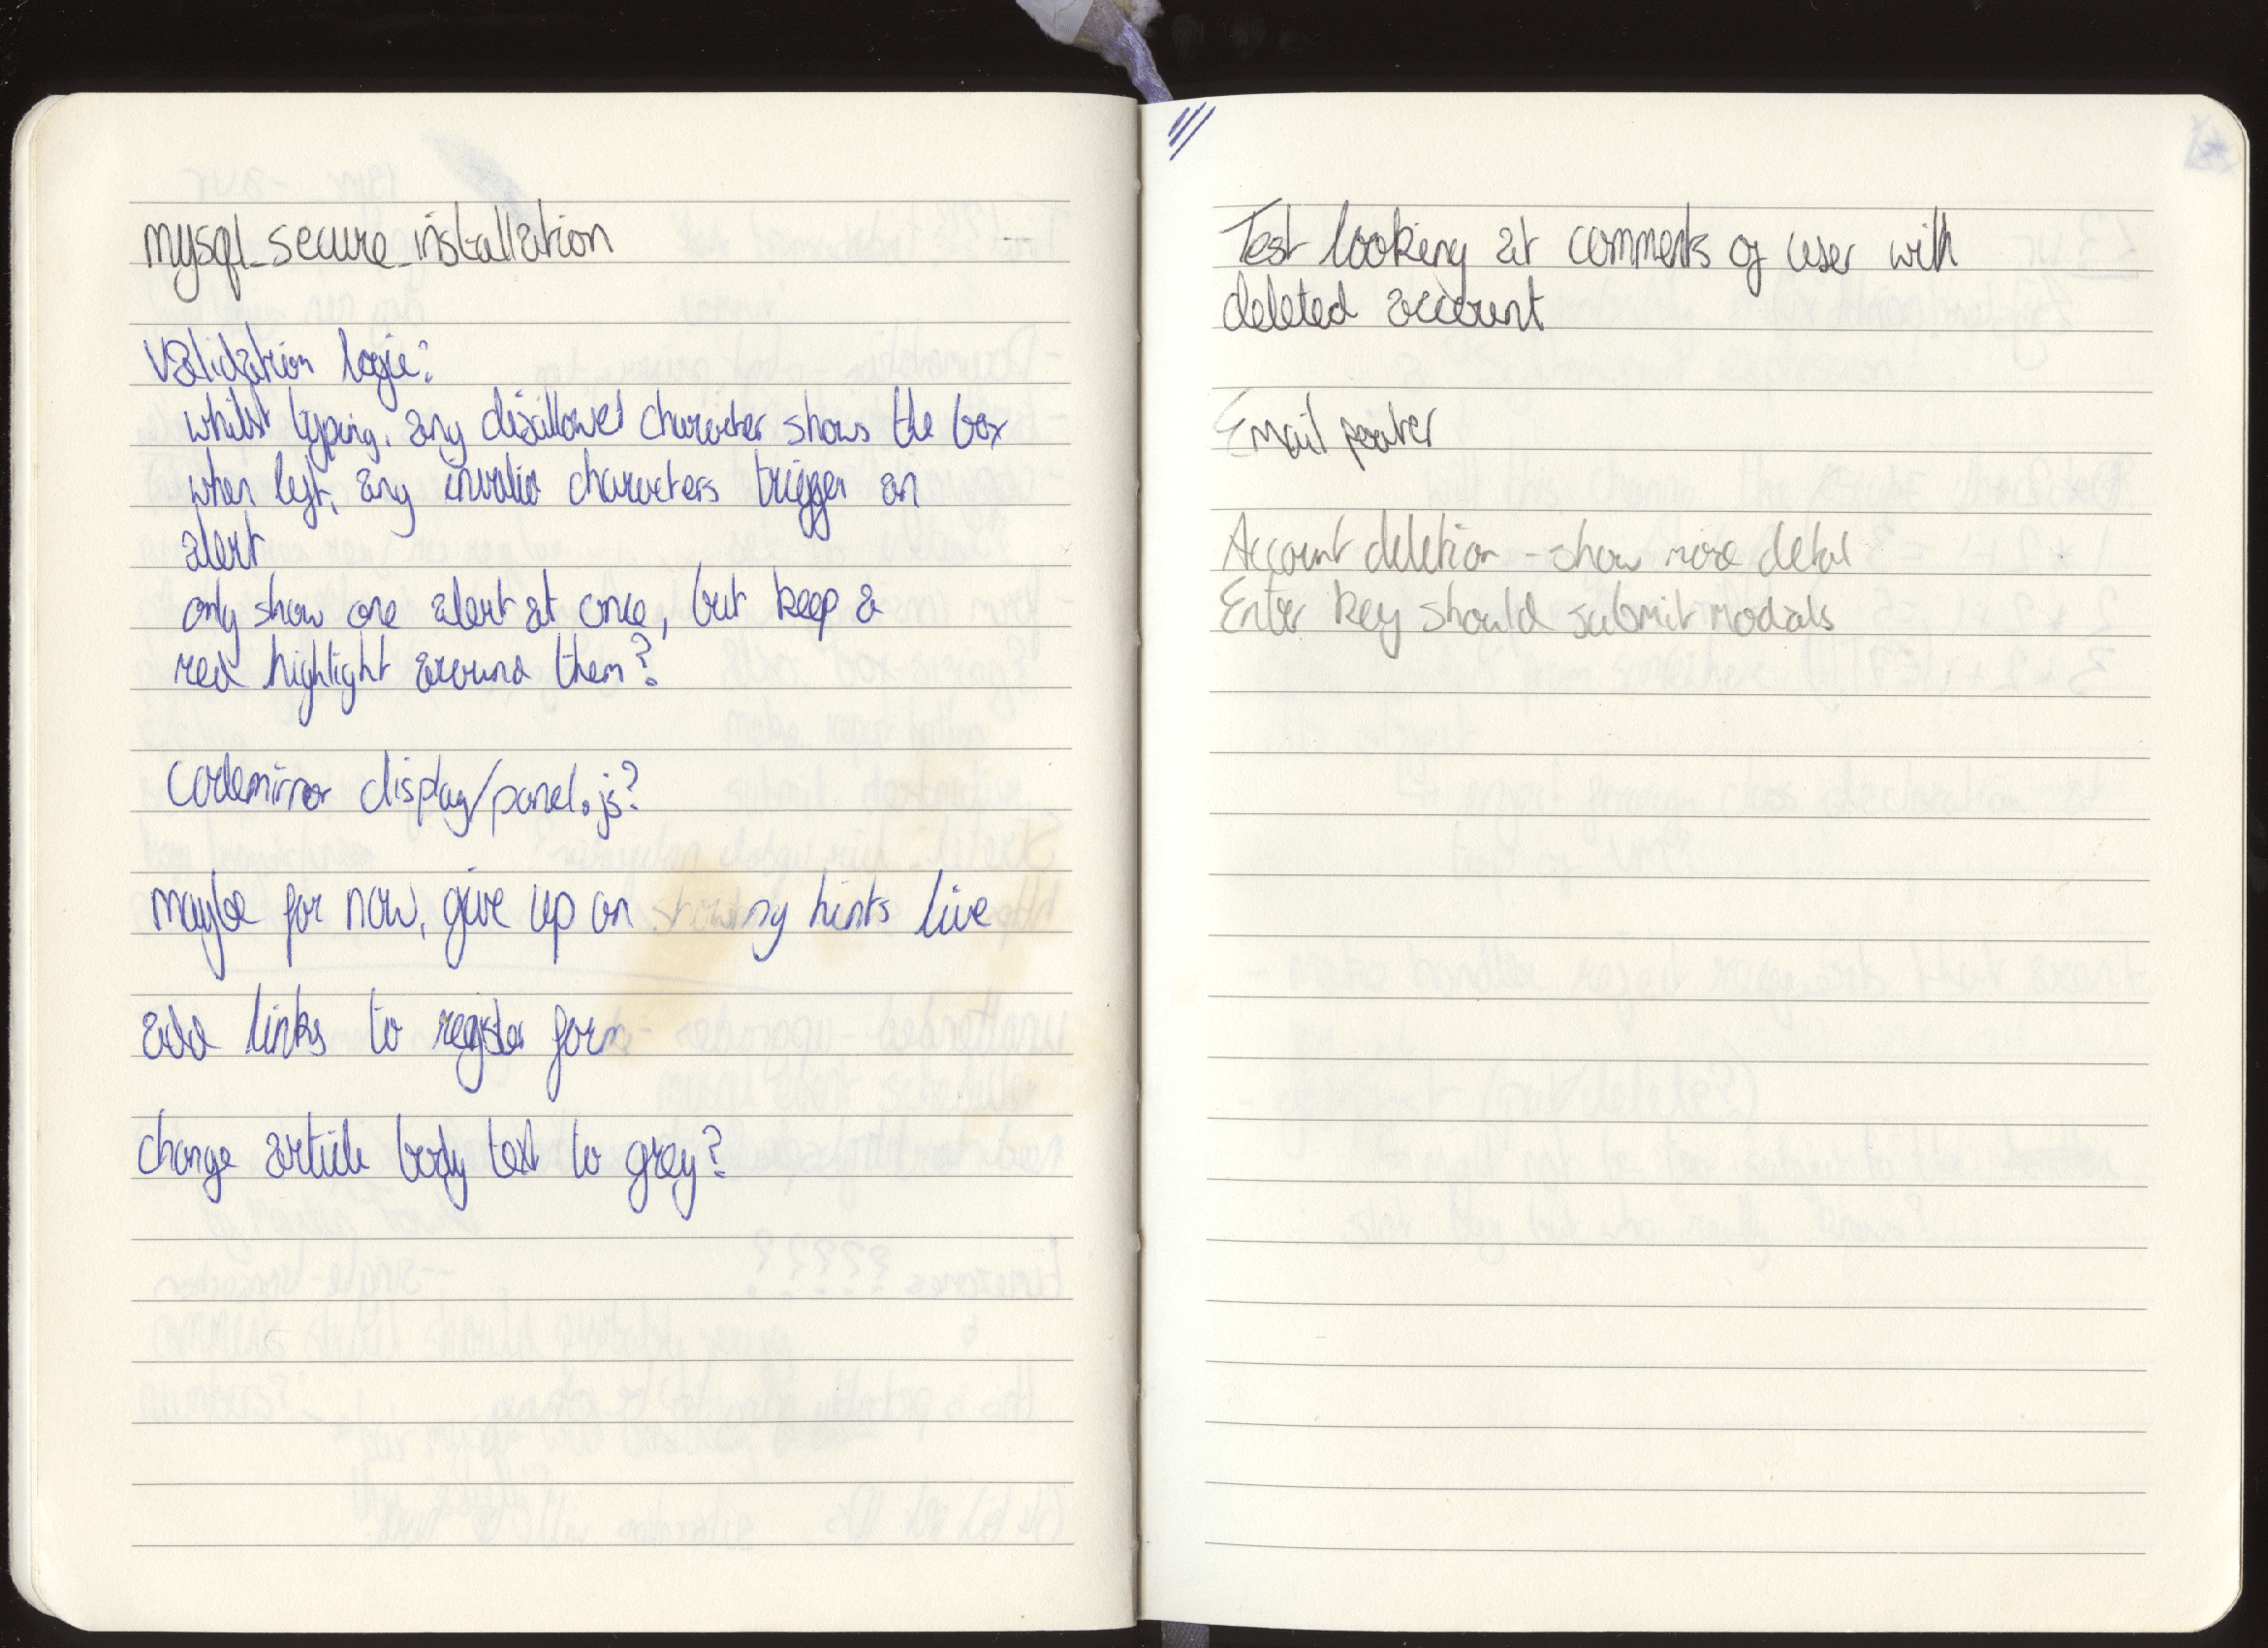 mysql_secure_installation
Validation logic:
whilst typing, any disallowed character shows the box
when left, any invalid characters trigger an
alert
only show one alert at once, but keep a
red highlight around them?
codemirror display/panel.js?
maybe for now, give up on showing hints live
add links to register form
change article body text to grey?
Test looking at comments of user with
deleted account
Email footer
Account deletion - show more detail
Enter key should submit modals